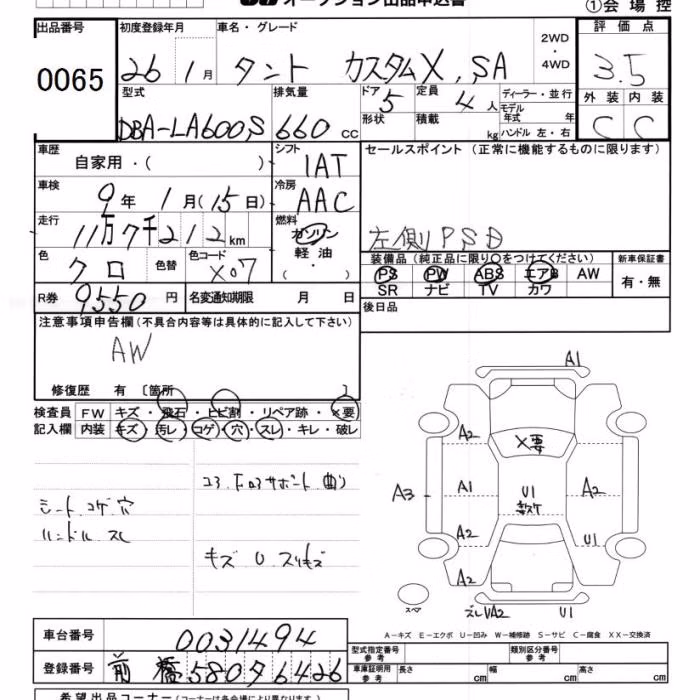 オークション出品申込書
①会場控
出品番号 初度登録年月 車名・グレード 2WD・4WD 評価点
0065 26 1月 タント カスタムX,SA 3.5
型式 排気量 ドア 5 定員 4人 ディーラー・並行 外装 内装
DBA-LA600S 660cc 形状 積載 kg モデル年式 年 C C
ハンドル 左・右
車歴 自家用・( ) シフト 1AT セールスポイント (正常に機能するものに限ります)
車検 9年 1月(15日) 冷房 AAC
走行 11万7千212km 燃料 ガソリン 軽油 (・)
左側PSD
色 クロ 色替 色コード X07
装備品(純正品に限り○をつけてください) 新車保証書
PS PW ABS エアB AW 有・無
SR ナビ TV カワ
R券 9550円 名変通知期限 月 日 後日品
注意事項申告欄(不具合内容等は具体的に記入して下さい)
AW
修復歴 有 〔箇所 〕
検査員 FW キズ・飛石・ヒビ割・リペア跡・×要
記入欄 内装 キズ・汚レ・コゲ・穴・スレ・キレ・破レ
コアF ロアサポート 曲り
シート コゲ 穴
ハンドル スレ
キズ U スリキズ
A1
A2 ×要
A3 A1 U1 A2
A2 U1
A2
スペア ズレUA2 U1
A-キズ E-エクボ U-凹み W-補修跡 S-サビ C-腐食 XX-交換済
車台番号 0031494
登録番号 前橋580タ6426
型式指定番号 参考 類別区分番号 参考
車庫証明用 参考 長さ cm 幅 cm 高さ cm
希望出品コーナー(コーナーは各会場により異なります。)